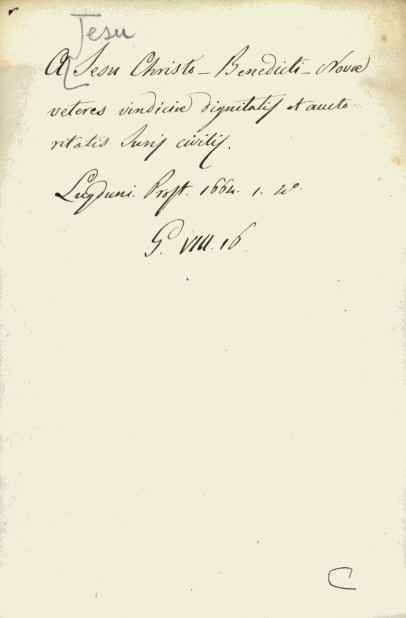 Jesu
A Jesu Christo - Benedicti - Novæ
veteres vindiciæ dignitatis et aucto-
ritatis Juris civilis.
Lugduni. Prost. 1664. 1. 4º.
G. VIII. 16
C